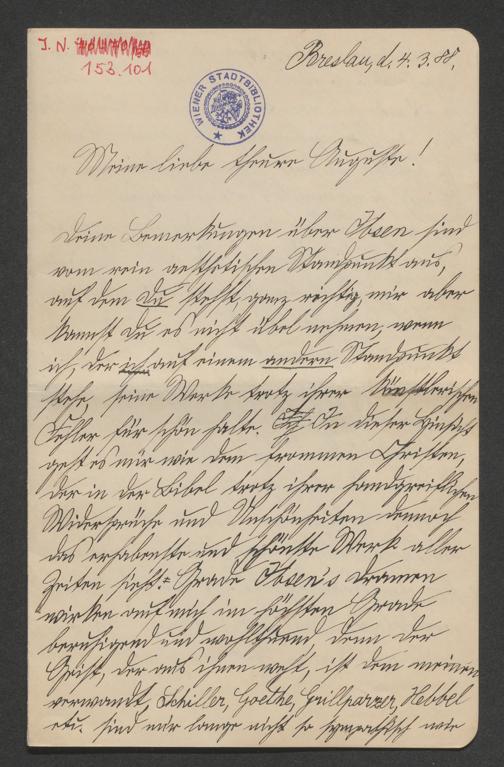 J. N.
153.101
WIENER STADTBIBLIOTHEK
Breslau, d. 4. 3. 88.
Meine liebe theure Auguste!
Deine Bemerkungen über Ibsen sind
vom rein aesthetischen Standpunkt aus,
auf dem Du stehst, ganz richtig, mir aber
kannst Du es nicht übel nehmen, wenn
ich, der ich auf einem andern Standpunkt
stehe, seine Werke trotz ihrer künstlerischen
Fehler für schön halte. In dieser Hinsicht
geht es mir wie dem frommen Christen,
der in der Bibel trotz ihrer handgreiflichen
Widersprüche und Unschönheiten dennoch
das erhabenste und schönste Werk aller
Zeiten sieht. Grade Ibsen's Dramen
wirken auf mich im höchsten Grade
beruhigend und wohlthuend, denn der
Geist, der aus ihnen weht, ist dem meinen
verwandt, Schiller, Goethe, Grillparzer, Hebbel
etc. sind mir lange nicht so sympathisch wie